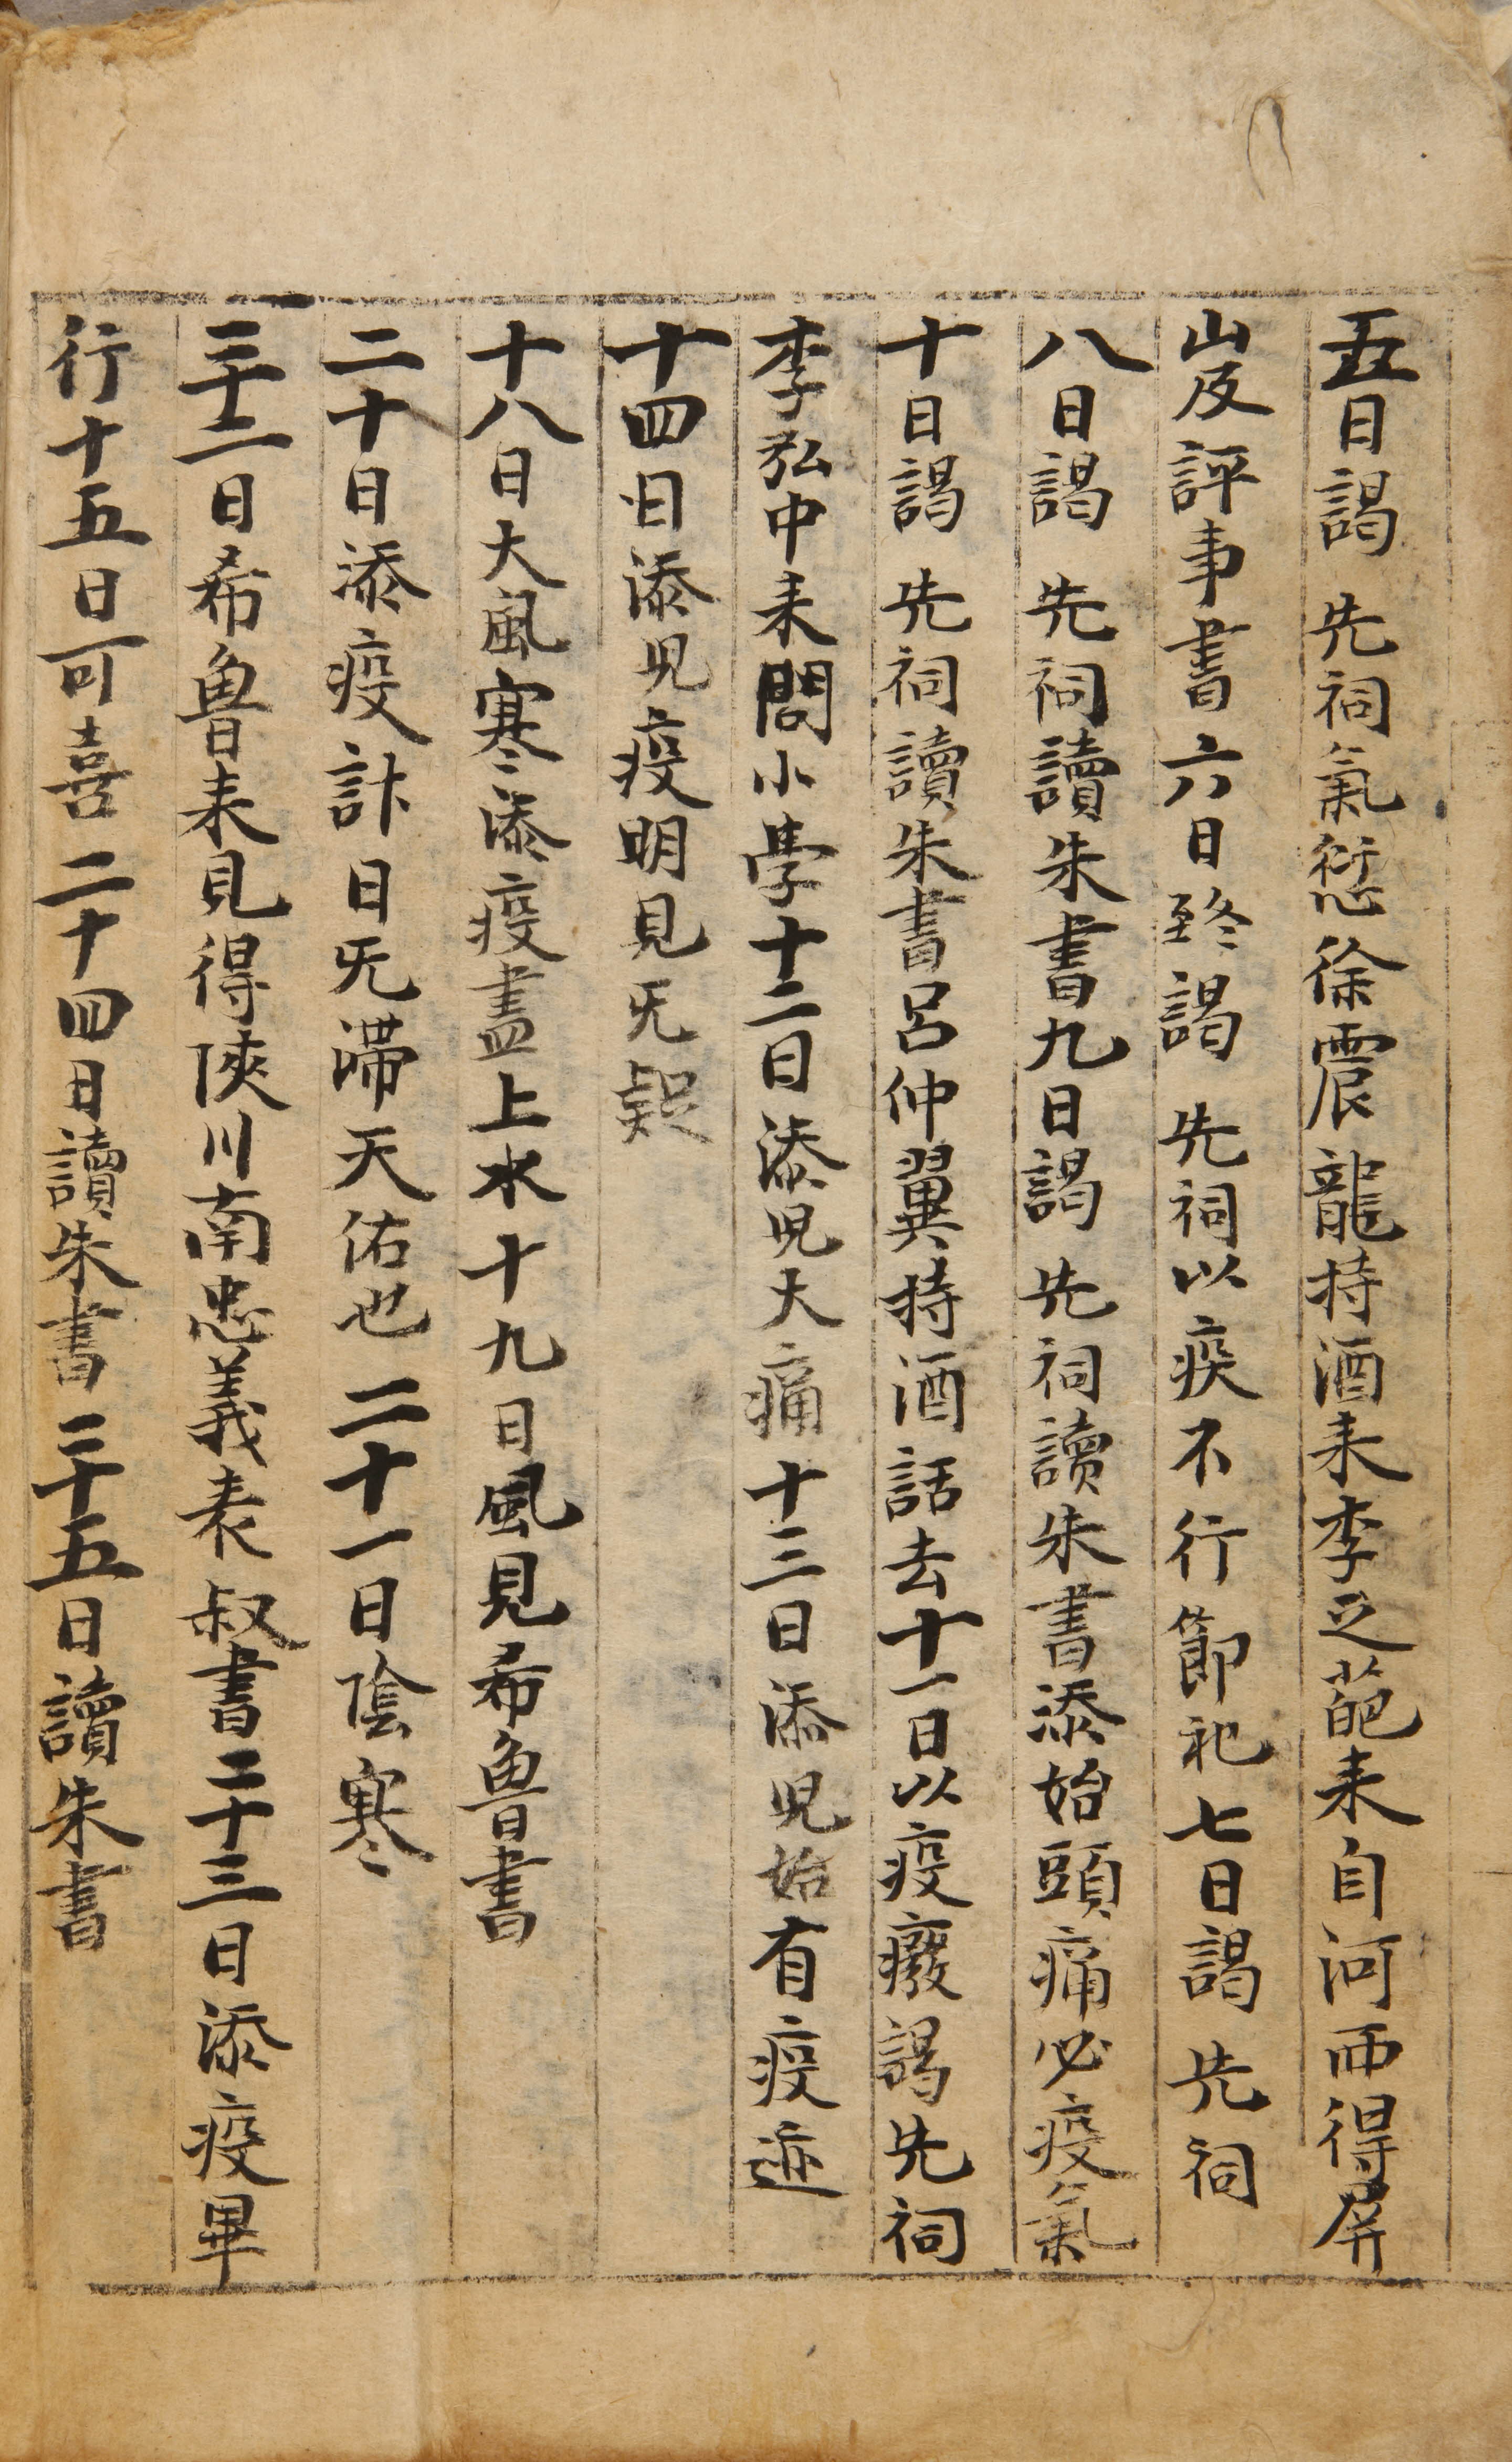 五日謁 先祠氣愆徐震龍持酒来李之葩来自河西得屏
山及評事書六日臸謁 先祠以疾不行節祀七日謁 先祠
八日謁 先祠讀朱書九日謁 先祠讀朱書添始頭痛必疫氣
十日謁 先祠讀朱書呂仲翼持酒話去十一日以疫癈謁先祠
李弘中来問小學十二日添児大痛十三日添児始有疫迹
十四日添児疫明見无疑
十八日大風寒添疫盡上水十九日風見希魯書
二十日添疫計日无滯天佑也二十一日陰寒
二十二日希魯来見得陜川南忠義表叔書二十三日添疫畢
行十五日可喜二十四日讀朱書二十五日讀朱書